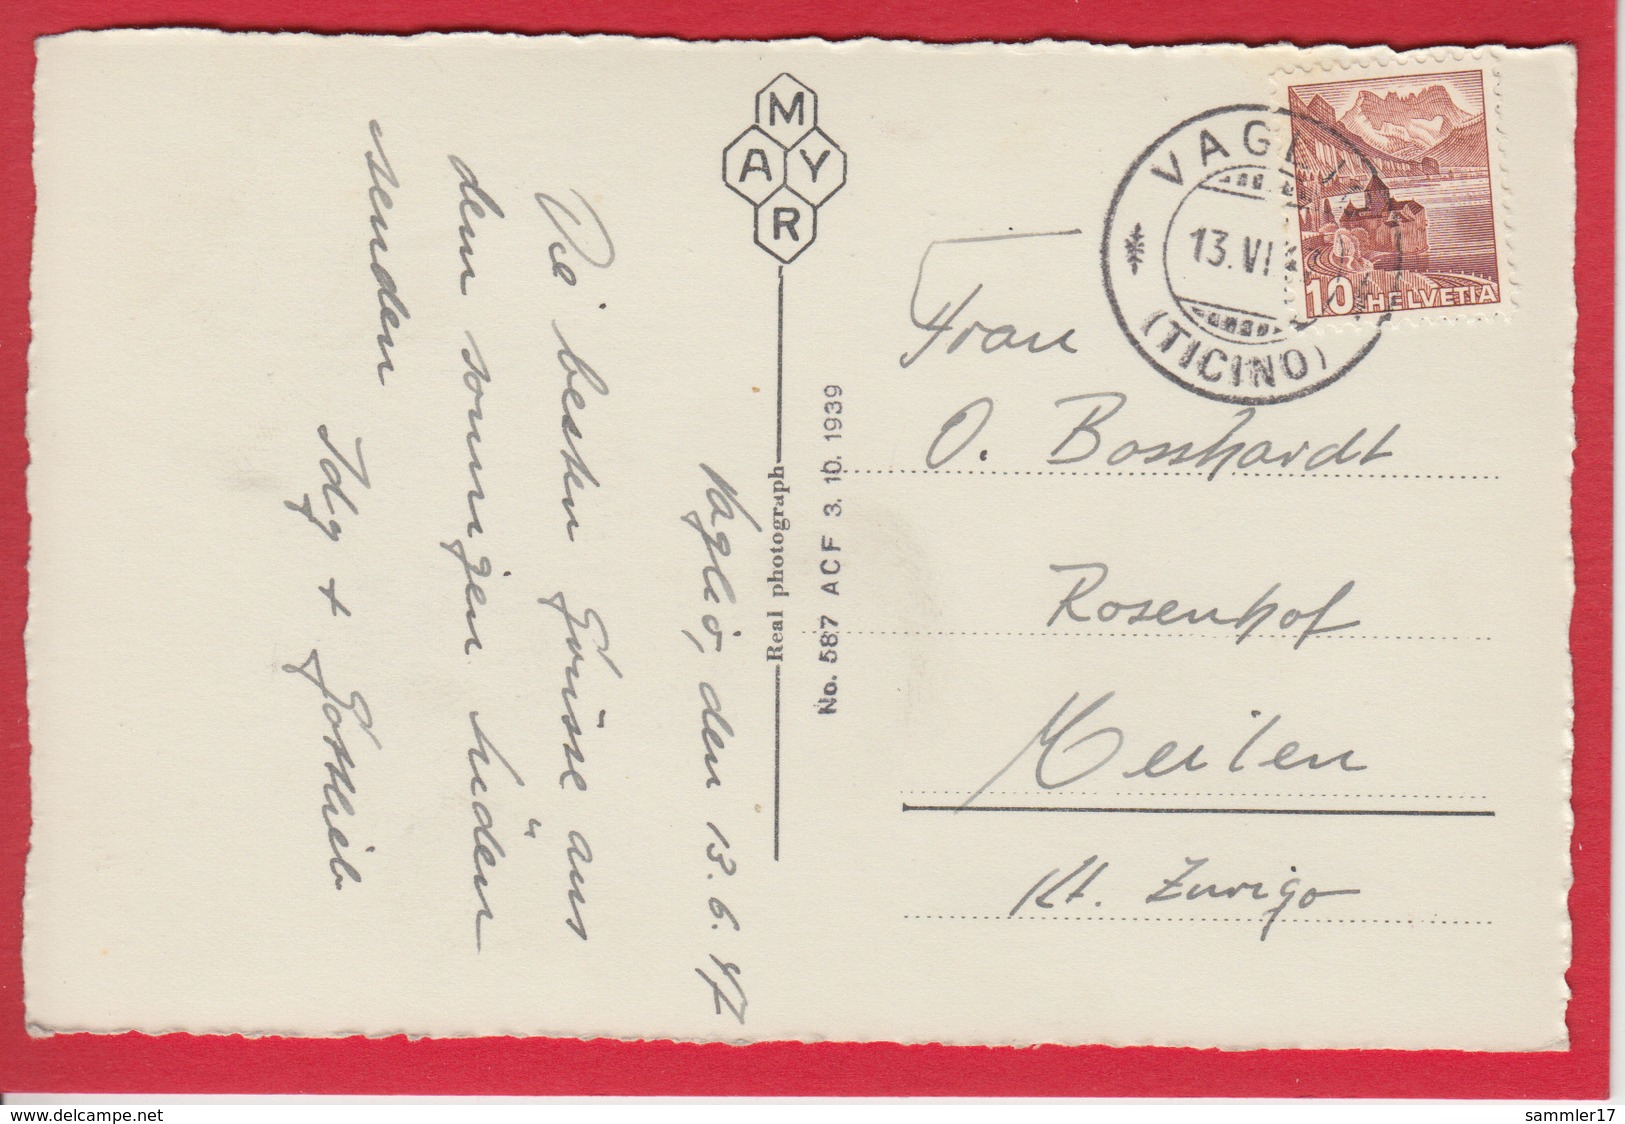 Vaglio, den 13. 6. 47
Die besten Grüsse aus
dem sonnigen Süden
senden
Idy + Gottlieb
MAYR
Real photograph
No. 587 ACF 3. 10. 1939
VAGLIO
13. VI
(TICINO)
10 HELVETIA
Frau
O. Bosshardt
Rosenhof
Meilen
Kt. Zurigo
www.delcampe.net
sammler17